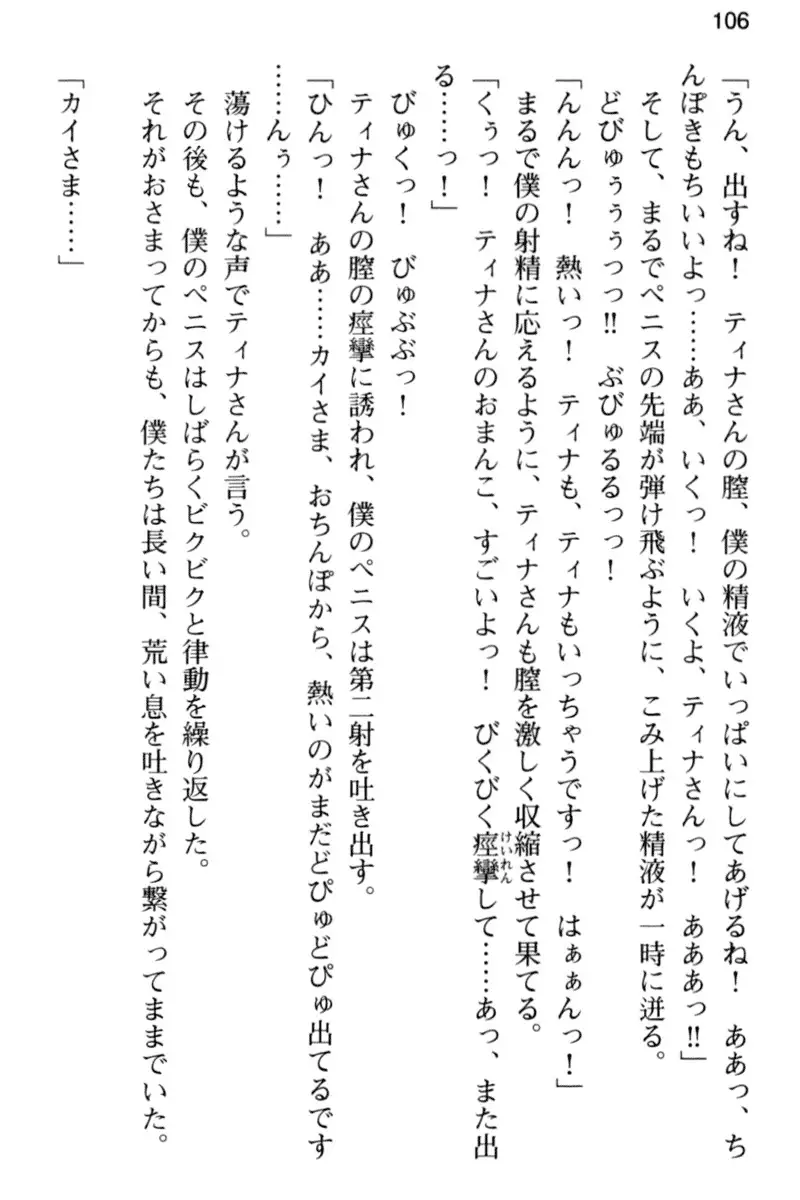 106
「うん、出すね!　ティナさんの膣、僕の精液でいっぱいにしてあげるね!　ああっ、ち
んぽきもちいいよっ……ああ、いくっ!　いくよ、ティナさんっ!　あああっ!!」
そして、まるでペニスの先端が弾け飛ぶように、こみ上げた精液が一時に迸る。
どびゅぅぅぅっっ!!　ぶびゅるるっっ!
「んんんっ!　熱いっ!　ティナも、ティナもいっちゃうですっ!　はぁぁんっ!」
まるで僕の射精に応えるように、ティナさんも膣を激しく収縮させて果てる。
「くぅっ!　ティナさんのおまんこ、すごいよっ!　びくびく痙攣けいれんして……あっ、また出
る……っ!」
びゅくっ!　びゅぶぶっ!
ティナさんの膣の痙攣に誘われ、僕のペニスは第二射を吐き出す。
「ひんっ!　ああ……カイさま、おちんぽから、熱いのがまだどぴゅどぴゅ出てるです
……んぅ……」
蕩けるような声でティナさんが言う。
その後も、僕のペニスはしばらくビクビクと律動を繰り返した。
それがおさまってからも、僕たちは長い間、荒い息を吐きながら繋がってままでいた。
「カイさま……」